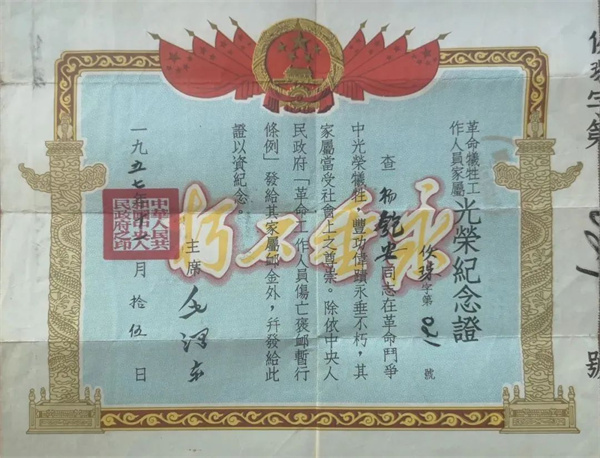 革命犧牲工
作人員家屬
光榮紀念證
字第 號
查杨匏安同志在革命鬥爭
中光榮犧牲，豐功偉蹟永垂不朽，其
家屬當受社會上之尊崇。除依中央人
民政府「革命工作人員傷亡褒卹暫行
條例」發給其家屬卹金外，幷發給此
證以資紀念。
主席 毛澤东
一九五七年 月拾五日
中華人民共
和國中央人
民政府之印
永垂不朽
字第
號